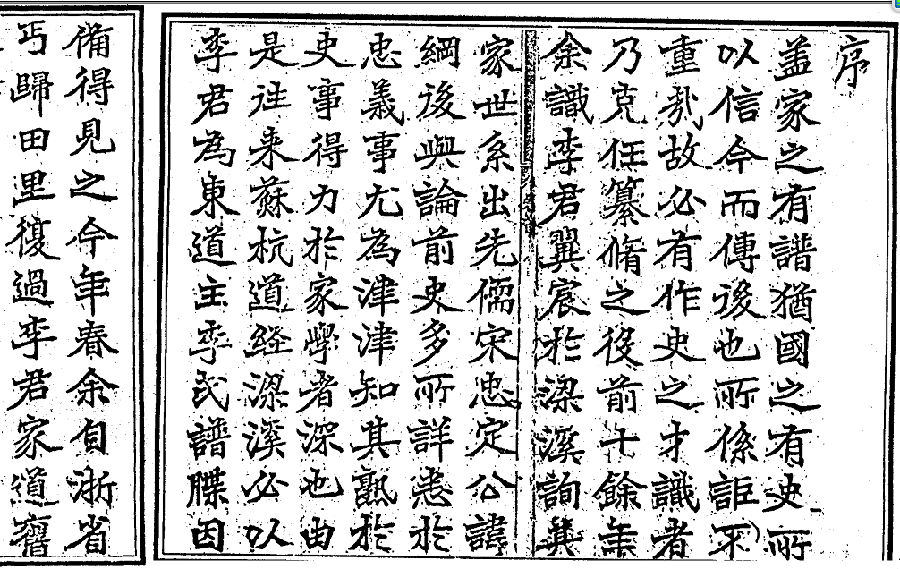 序
盖家之有譜猶國之有史所
以信今而傳後也所係詎不
重哉故必有作史之才識者
乃克任纂脩之役前十餘年
余識李君翼宸於梁溪詢其
家世系出先儒宋忠定公諱
綱後與論前史多所詳悉於
忠義事尤為津津知其熟於
史事得力於家學者深也由
是往来蘇杭道經梁溪必以
李君為東道主李氏譜牒因
備得見之今年春余自浙省
丐歸田里復過李君家道舊